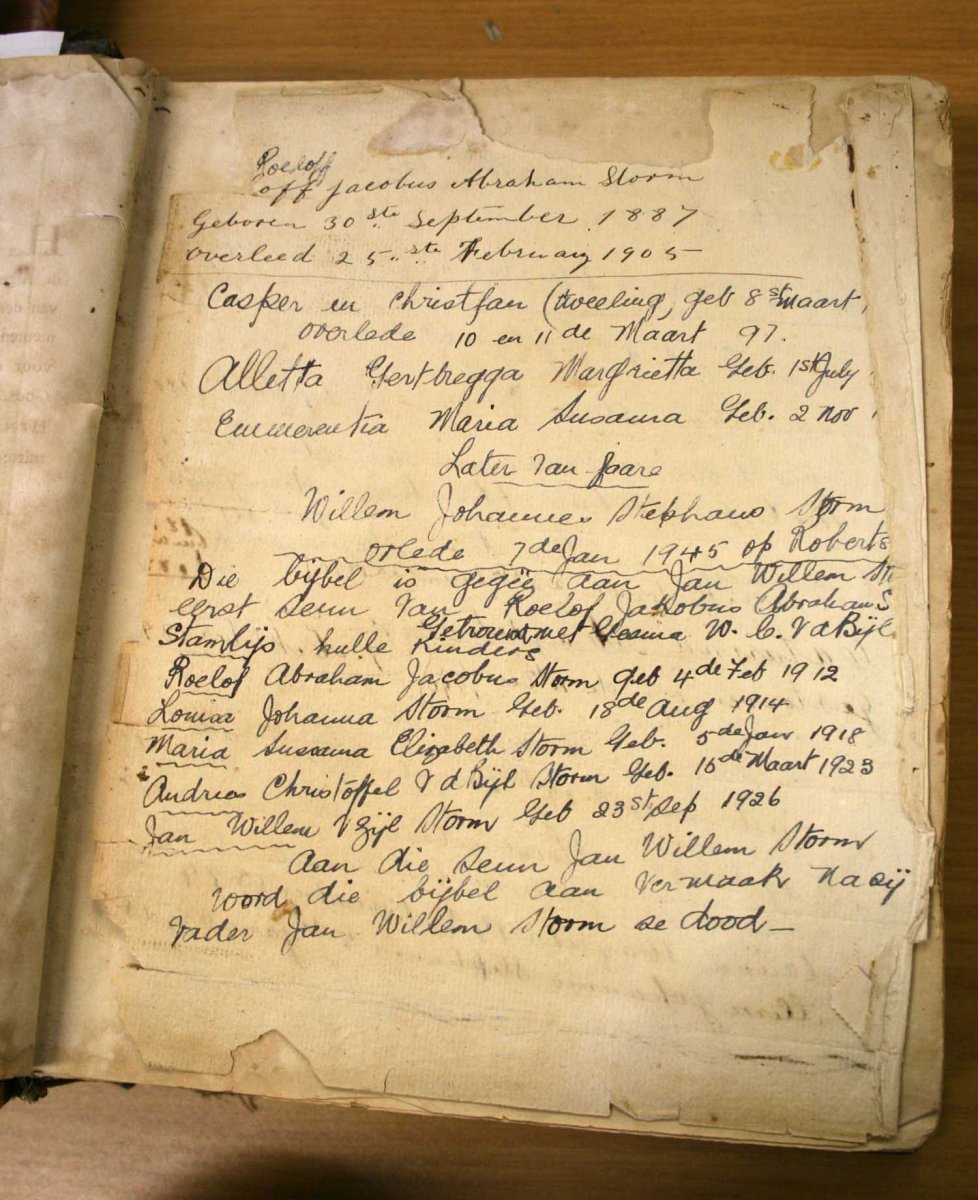 Roeloff
off Jacobus Abraham Storm
Geboren 30ste September 1887
overleed 25ste February 1905
Casper en Christjan (tweeling, geb 8st Maart
overlede 10 en 11de Maart 97.
Alletta Gertbregga Margrietta Geb. 1st July
Emmerentia Maria Susanna Geb. 2 Nov
Later van jaare
Willem Johannes Stephanus Storm
orlede 7de Jan 1945 op Roberts
Die bijbel is gegëe aan Jan Willem St
eerst seun van Roelof Jakobus Abraham S
Getrouwt met W. C. V d Bijl
Stamlijs hulle kinders
Roelof Abraham Jacobus Storm geb 4de Feb 1912
Louisa Johanna Storm Geb. 18de Aug 1914
Maria Susanna Elizabeth Storm Geb. 5de Jan 1918
Andries Christoffel V d Bijl Storm Geb. 15de Maart 1923
Jan Willem V Zijl Storm Geb 23st Sep 1926
Aan die seun Jan Willem Storm
word die bijbel aan vermaak na sij
vader Jan Willem Storm se dood—